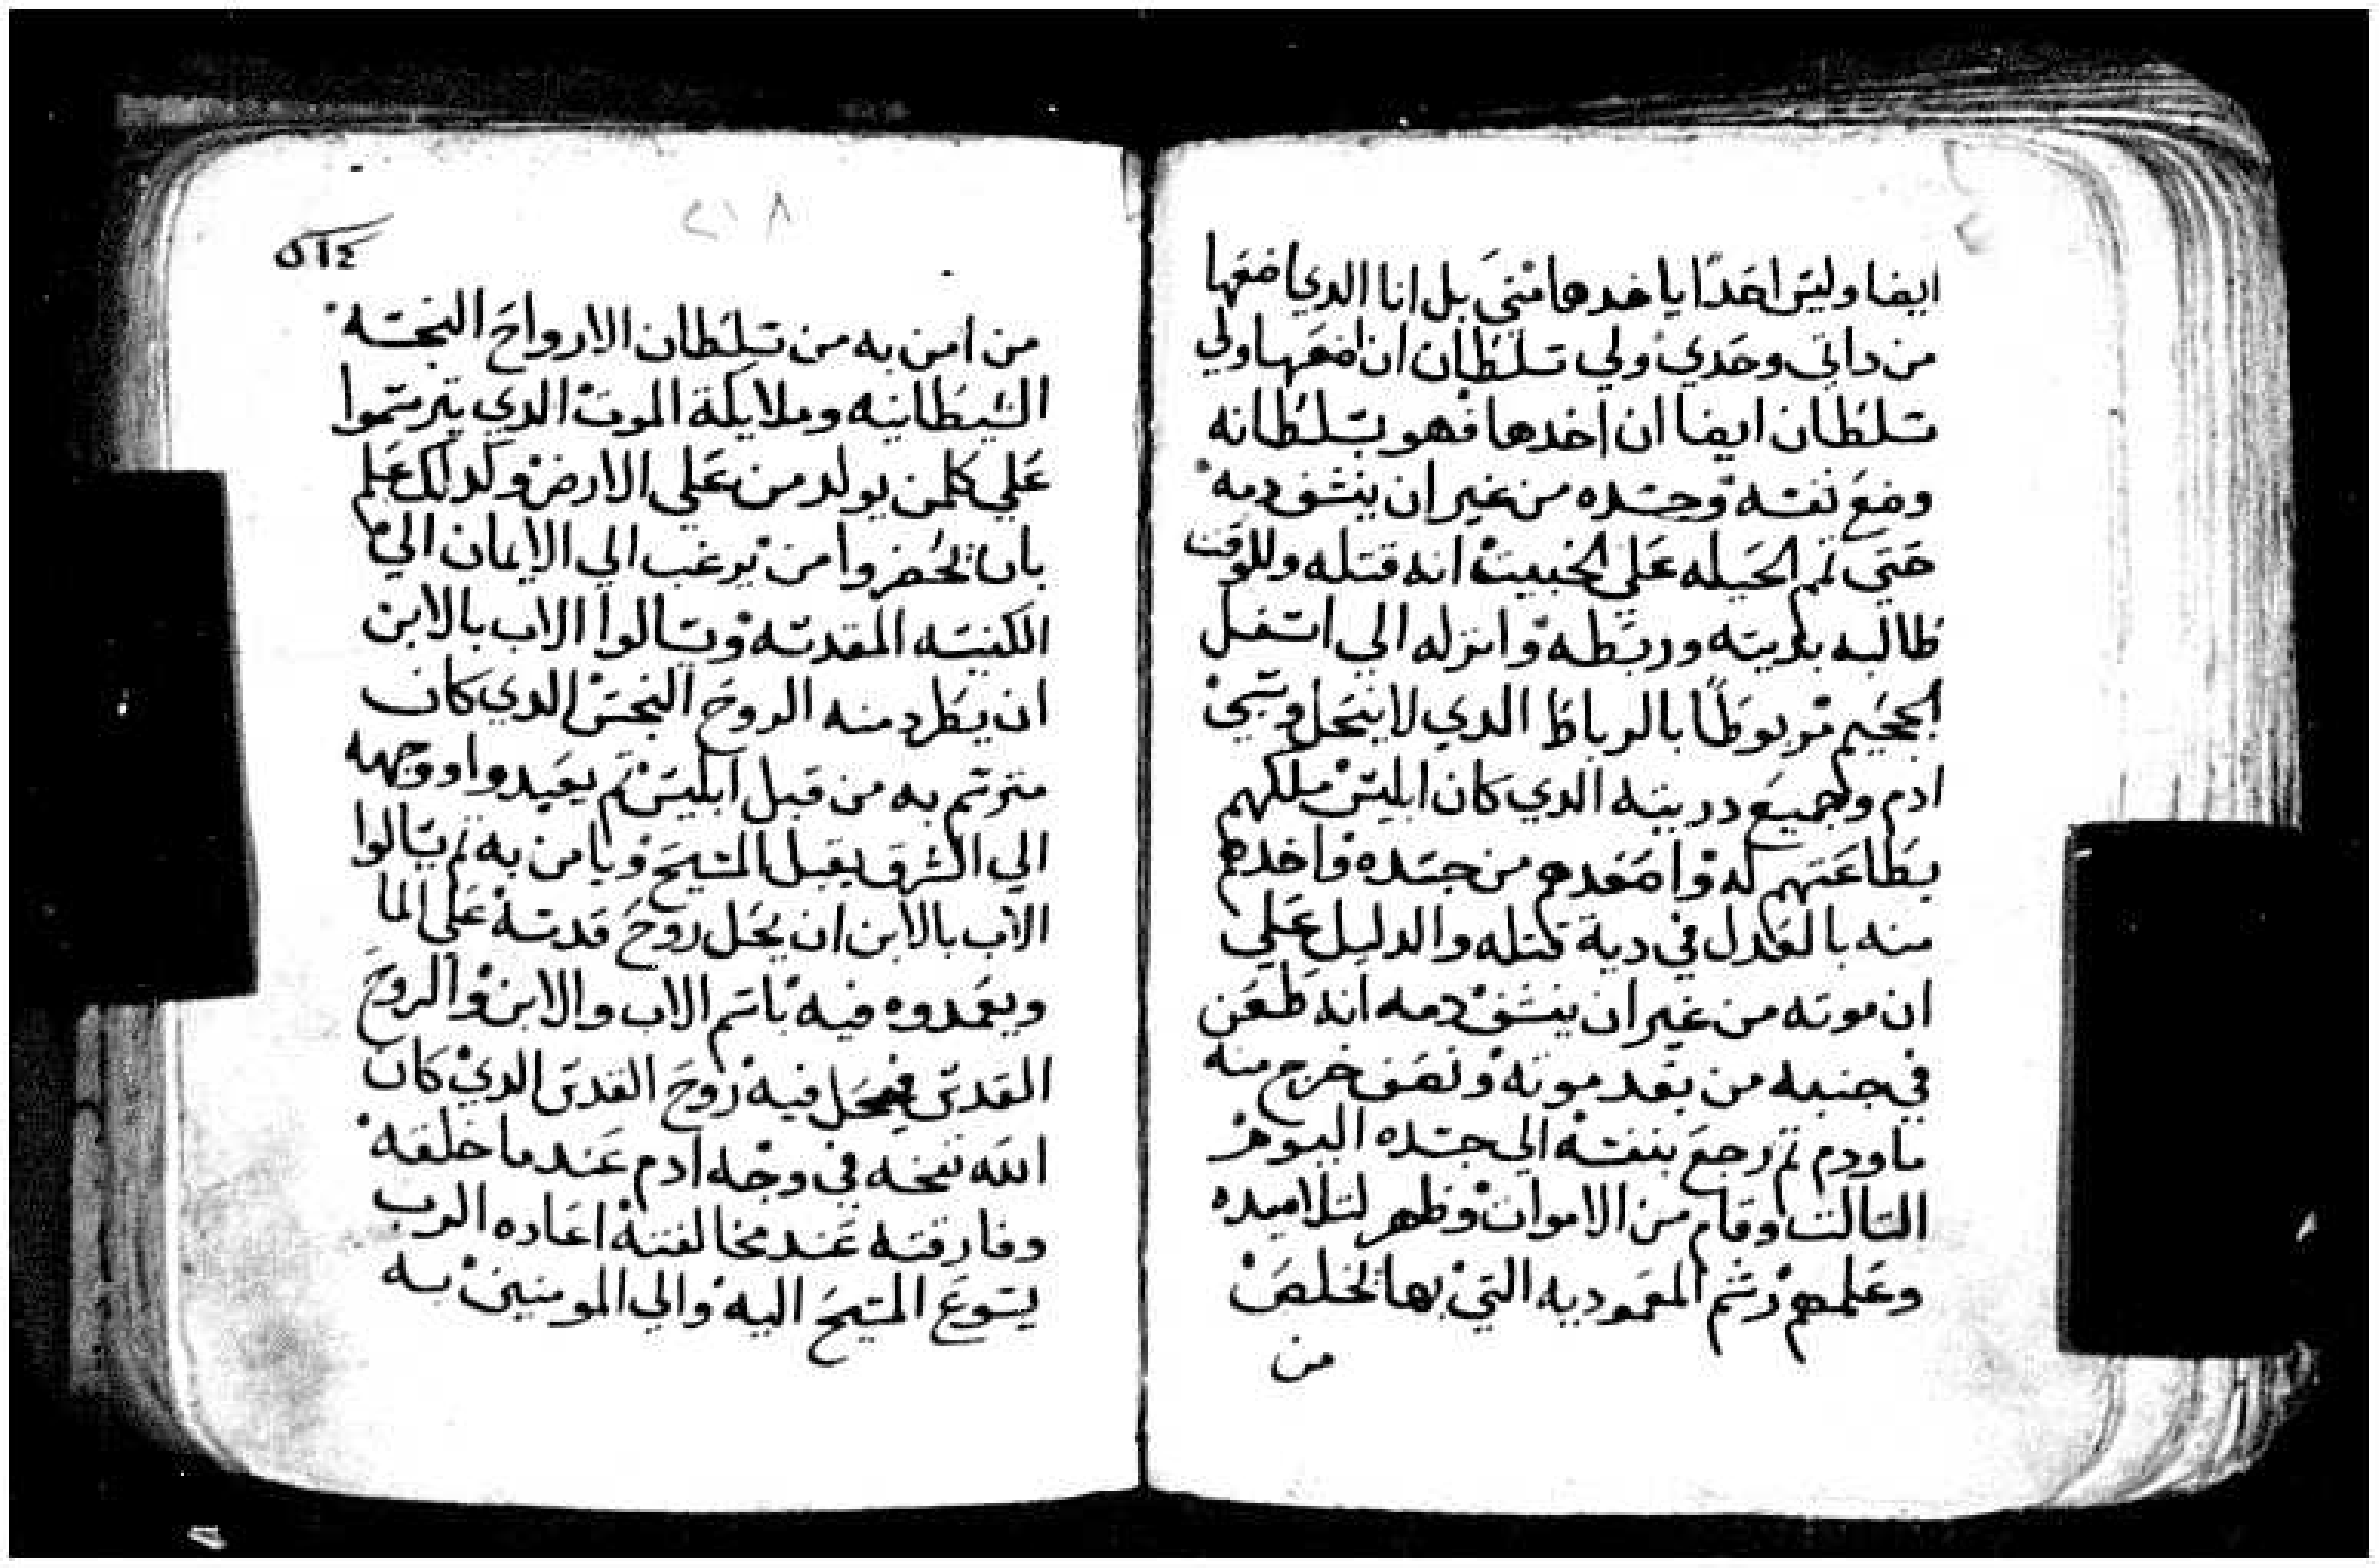 ايضا وليس احدًا ياخدها مني بل انا الدي اضعها
من داتي وحدي ولي سلطان ان اضعها ولي
سلطان ايضا ان اخدها فهو بسلطانه
وضع نفسه وجسده من غير ان ينشف دمه
حتي تم الحيله علي الخبيت انه قتله وللوقت
طالبه بديته وربطه وانزله الي اسفل
الجحيم مربوطًا بالرباط الدي لا ينحل وسبي
ادم وجميع دريته الدي كان ابليس ملكهم
بطاعتهم له واصعدهم من جسده واخدهم
منه بالعدل في دية قتله والدليل علي
ان موته من غير ان ينشف دمه انه طعن
في جنبه من بعد موته ونصف خرج منه
ما ودم تم رجع بنفسه الي جسده اليوم
التالت وقام من الاموات وظهر لتلاميده
وعلمهم رشم المعموديه التي بها تخلص
من
٥١٤
٢١٨
من امن به من سلطان الارواح النجسه
الشيطانيه وملايكة الموت الدي يترسموا
علي كلمن يولد من علي الارض ولدلك علم
بان تحضروا من يرغب الي الايمان الي
الكنيسه المقدسه ويسالوا الاب بالابن
ان يطرد منه الروح النجس الدي كان
مترسم به من قبل ابليس تم يعيدوا ووجهه
الي الشرق يقبل المسيح ويامن به تم يسالوا
الاب بالابن ان يحل روح قدسه علي الما
ويعمدوه فيه باسم الاب والابن والروح
القدس فيحل فيه روح القدس الدي كان
الله نفخه في وجه ادم عند ما خلقه
وفارقته عند مخالفته اعاده الرب
يسوع المسيح اليه والي المومنين به